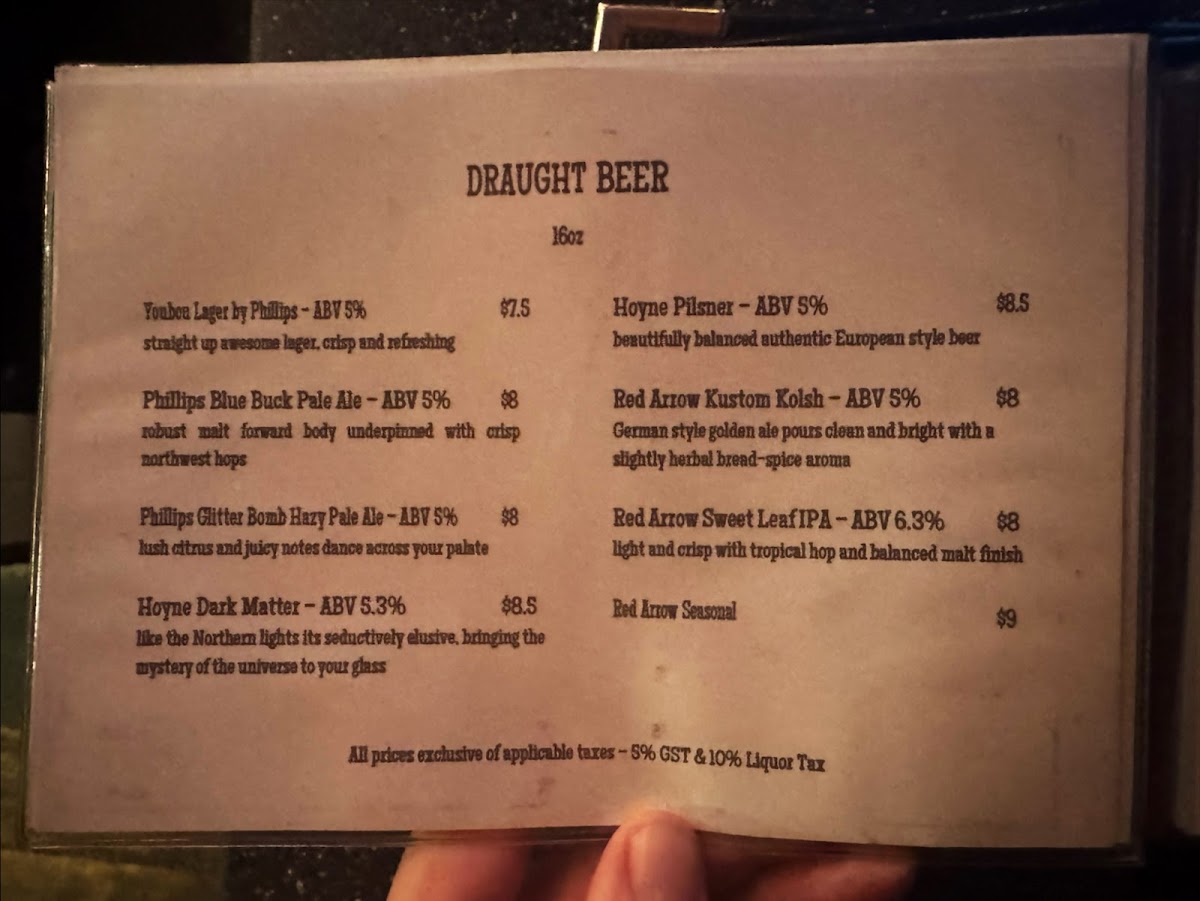 DRAUGHT BEER
16oz
Youbou Lager by Phillips - ABV 5% $7.5
straight up awesome lager, crisp and refreshing
Phillips Blue Buck Pale Ale - ABV 5% $8
robust malt forward body underpinned with crisp
northwest hops
Phillips Glitter Bomb Hazy Pale Ale - ABV 5% $8
lush citrus and juicy notes dance across your palate
Hoyne Dark Matter - ABV 5.3% $8.5
like the Northern lights its seductively elusive, bringing the
mystery of the universe to your glass
Hoyne Pilsner - ABV 5% $8.5
beautifully balanced authentic European style beer
Red Arrow Kustom Kolsh - ABV 5% $8
German style golden ale pours clean and bright with a
slightly herbal bread-spice aroma
Red Arrow Sweet Leaf IPA - ABV 6.3% $8
light and crisp with tropical hop and balanced malt finish
Red Arrow Seasonal $9
All prices exclusive of applicable taxes - 5% GST & 10% Liquor Tax